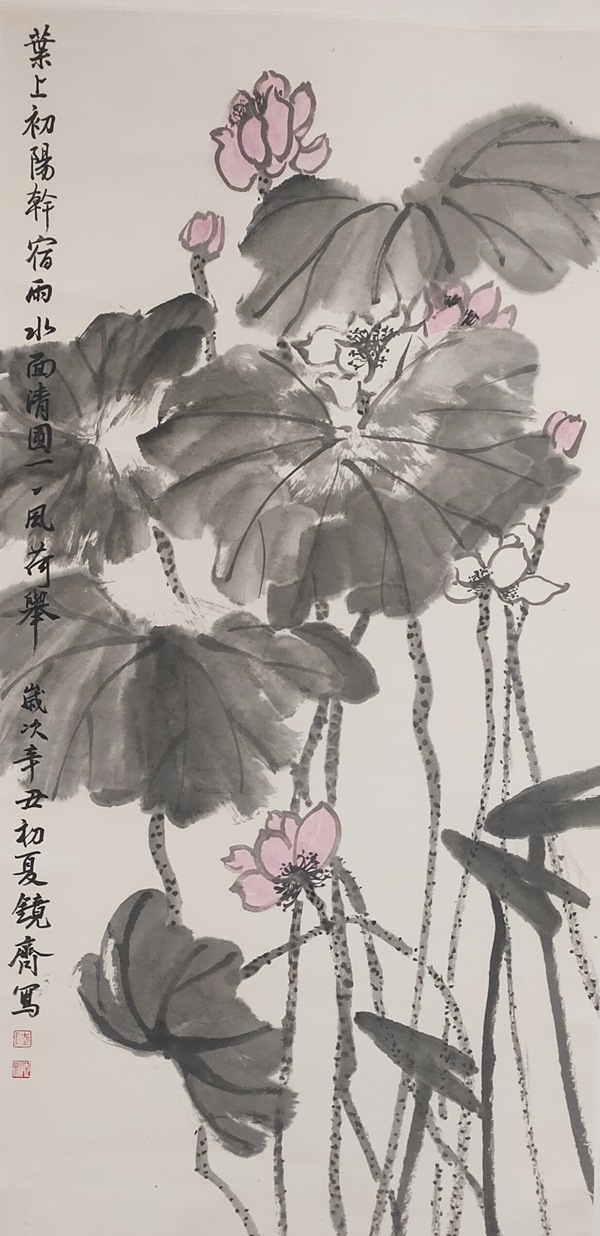 葉上初陽幹宿雨水面清圓一〻風荷舉 歲次辛丑初夏鏡齋寫